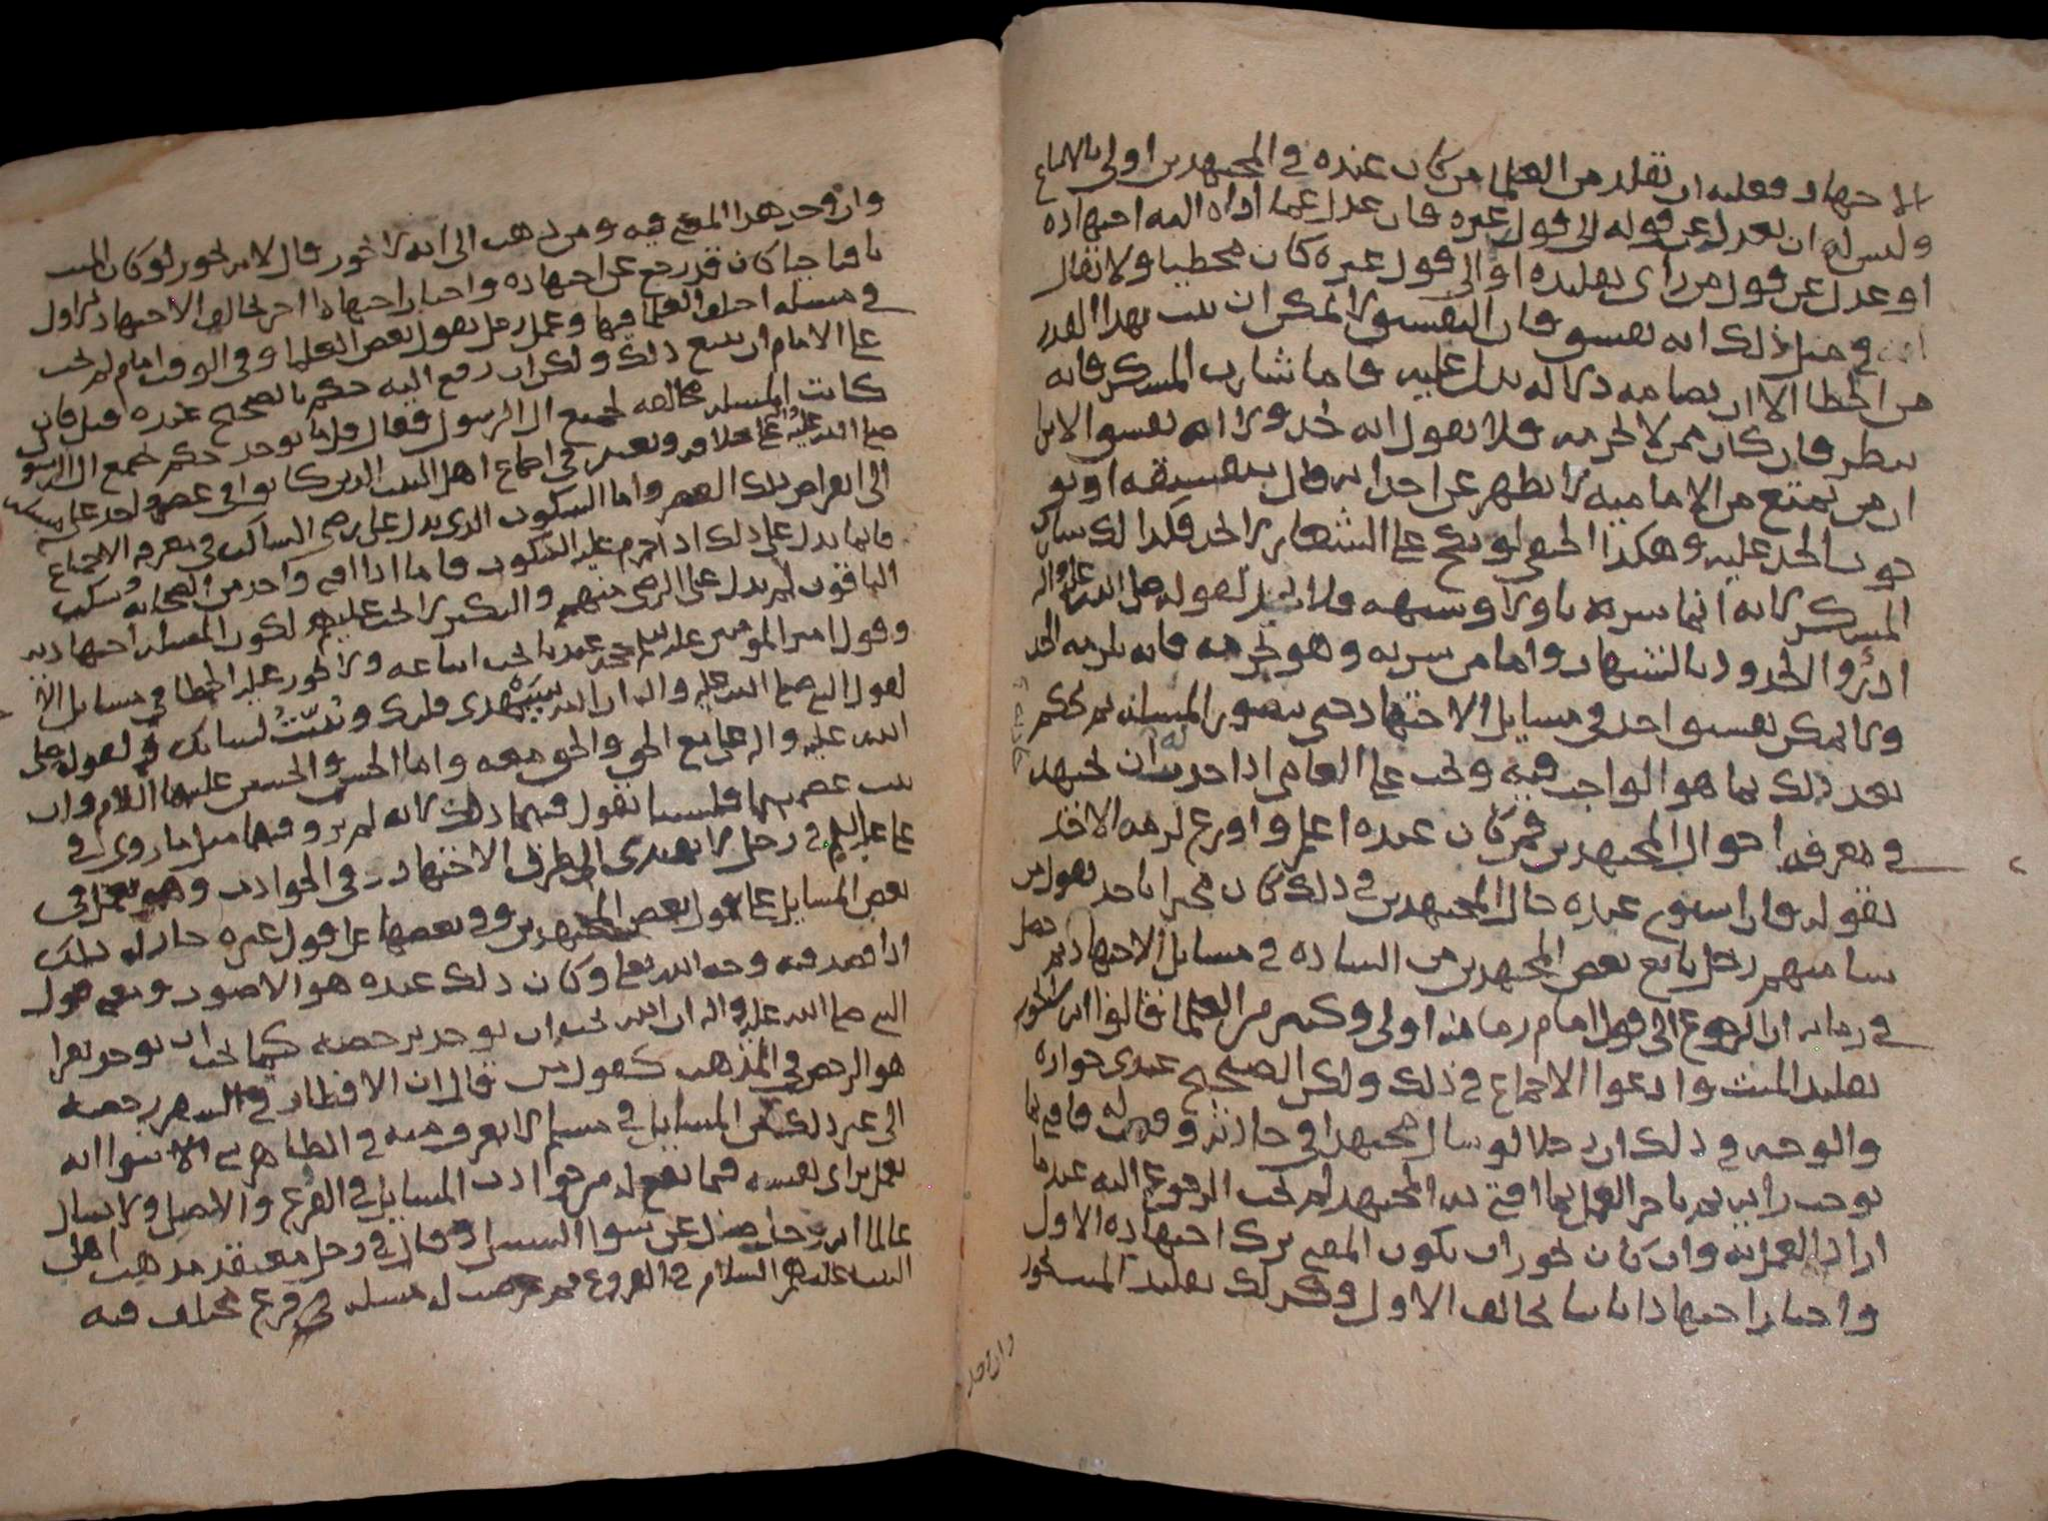 الاجتهاد فعليه ان يقلد من العلما من كان عنده في المجتهدين اولى بالاتباع
وليس له ان يعدل عن قوله الى قول غيره فان عدل عما اداه اليه اجتهاده
او عدل عن قول من راى تقليده او الى قول غيره كان مخطيا ولا يقال
في مثل ذلك انه يفسق فان التفسيق لا يمكن ان يثبت بهذا القدر
من الخطا الا ان يضامه دلاله تدل عليه فاما شارب المسكر فانه
ينظر فان كان ممن لا يحرمه فلا يقول انه يحد ولا انه يفسق الا ان
ان من يمتنع من الاماميه لا يظهر عن احد انه قال بتفسيقه او بو
جوب الحد عليه وهكذا الحنفي لو نكح على الشغار لا يحد فكذا لك شارب
المسكر لانه انما شربه تاولا وشبهه فلا يحد لقوله صلى الله عليه واله
ادرؤا الحدود بالشبهات واما من شربه وهو يحرمه فانه يلزمه الحد
ولا يمكن تفسيق احد في مسايل الاجتهاد حتى يتصور المسله ثم يحكم
بعد ذلك بما هو الواجب فيه ويجب على العامي اذا حدث له ان يجتهد
في معرفه احوال المجتهدين فمن كان عنده اعلم واورع لزمه الاخذ
بقوله فان استوى عنده حال المجتهدين في ذلك كان مخيرا ياخذ بقول من
شا منهم رجل تابع بعض المجتهدين من الساده في مسايل الاجتهاد ثم حصل
في زمانه ان الرجوع الى قول امام زمانه اولى وكثير من العلما قالوا انه لا يجوز
تقليد الميت وادعوا الاجماع في ذلك ولكن الصحيح عندي جوازه
والوجه في ذلك ان رجلا لو سال مجتهدا في حادثه وقعت له فافتى بما
يوجب رايه ثم تاخر العمل بما افتى به المجتهد لم يجب الرجوع اليه عند ما
اراد العمل به وان كان يجوز ان يكون المفتي ترك اجتهاده الاول
واختار اجتهادا ثانيا يخالف الاول وكذلك تقليد الميت يجوز
وان وجد
وان وجد هذا المعنى فيه ومن ذهب الى انه لا يجوز قال لانه يجوز لو كان الميت
باقيا حيا كان قد رجع عن اجتهاده واختار اجتهادا اخر يخالف الاجتهاد الاول
في مسله اختلف العلما فيها وعمل رجل بقول بعض العلما وفي الوقت امام لم يجب
على الامام ان يتبع ذلك ولكن ان رفع اليه حكم بالصحيح عنده قيل فان
كانت المسله مخالفه لجميع ال الرسول فقال قل ما يوجد حكم لجميع ال الرسول
صلى الله عليه واله على خلافه ويعتبر في اجماع اهل البيت الذين كانوا في عصر واحد على
الى انقراض ذلك العصر واما السكوت الذي يدل على رضى الساكت في معرفه الاجماع
فانما يدل على ذلك اذا حرم عليه السكوت فاما اذا افتى واحد من الصحابه وسكت
الباقون لم يدل على الرضى منهم والنكير لا يجب عليهم لكون المسله اجتهاديه
وقول امير المومنين عليه السلام حجه عندنا يجب اتباعه ولا يجوز عليه الخطا في مسايل الا
لقول النبي صلى الله عليه واله ان الله سيهدي قلبك ويثبت لسانك ولقوله صلى
الله عليه واله علي مع الحق والحق معه واما الحسن والحسين عليهما السلام وان
ثبت عصمتهما فلسنا نقول فيهما ذلك لانه لم يرو فيهما مثل ما روي في
علي عليه السلام في رجل لا يهتدي الى طرق الاجتهاد في الحوادث وهو يعمل في
بعض المسايل على قول بعض المجتهدين وفي بعضها على قول غيره جاز له ذلك
اذا قصد فيه وجه الله تعالى وكان ذلك عنده هو الاصوب ومعنى قول
النبي صلى الله عليه واله ان الله يحب ان يوخذ برخصه كما يحب ان يوخذ بعزا
هو الرخص في المذهب كقول من قال ان الافطار في السفر رخصه
الى غير ذلك من المسايل في مسلم لا يعرف منه في الظاهر الا انه
يعمل براي نفسه فيما يقع له من حوادث المسايل في الفرع والاصل ولا يسال
عالما انه رجل ضل عن سوا السبيل وقال في رجل معتقد مذهب اهل
البيت عليهم السلام في الفروع ثم عرضت له مسله في فرع مختلف فيه